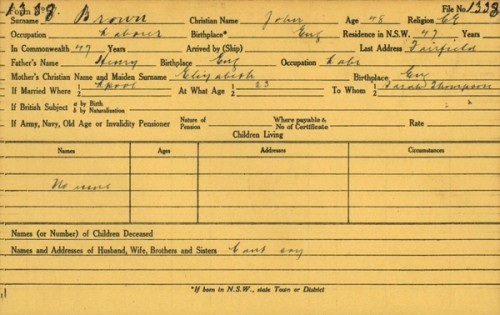 1338
Form 3 File No. 1338
Surname Brown Christian Name John Age 48 Religion CE
Occupation Labourer Birthplace* Eng Residence in N.S.W. 47 Years
In Commonwealth 47 Years Arrived by (Ship) Last Address Fairfield
Father's Name Henry Birthplace Eng Occupation Labr
Mother's Christian Name and Maiden Surname Elizabeth Birthplace Eng
If Married Where 1 L'pool At What Age 1 23 To Whom 1 Sarah Thompson
2 2 2
If British Subject a by Birth.
b by Naturalization
If Army, Navy, Old Age or Invalidity Pensioner Nature of Pension Where payable & No. of Certificate Rate
Children Living
Names Ages Addresses Circumstances
No issue
Names (or Number) of Children Deceased
Names and Addresses of Husband, Wife, Brothers and Sisters Cant say
*If born in N.S.W., state Town or District